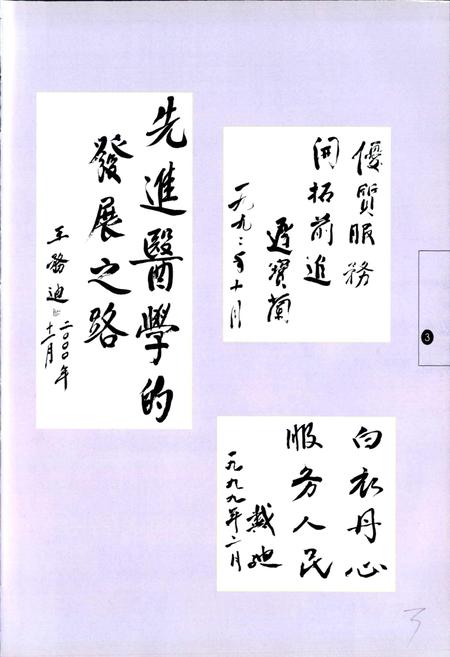 先進醫學的
發展之路
王務迪
二〇〇〇年
十一月
優質服務
開拓前進
遲寶蘭
一九九二年十月
白衣丹心
服务人民
戴迪
一九九九年二月
3
3